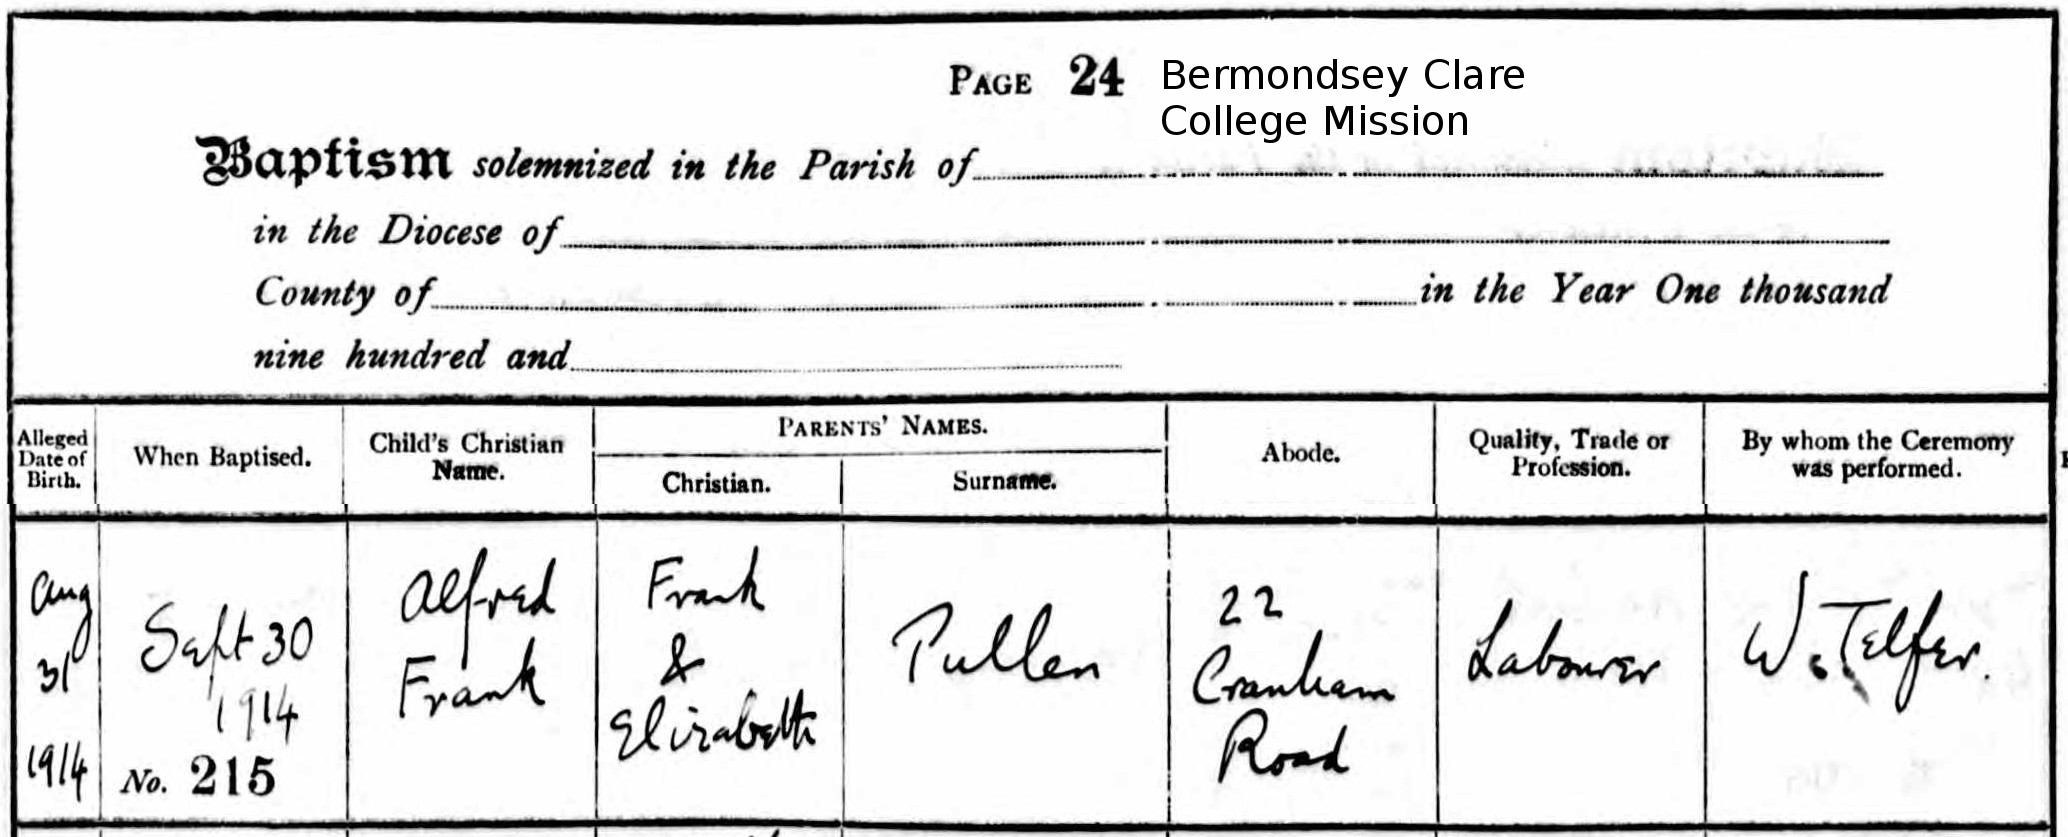 PAGE 24 Bermondsey Clare
College Mission
Baptism solemnized in the Parish of
in the Diocese of
County of in the Year One thousand
nine hundred and
Alleged
Date of
Birth.
When Baptised.
Child's Christian
Name.
PARENTS' NAMES.
Christian.
Surname.
Abode.
Quality, Trade or
Profession.
By whom the Ceremony
was performed.
Aug
31
1914
Sept 30
1914
No. 215
Alfred
Frank
Frank
&
Elizabeth
Pullen
22
Cranham
Road
Labourer
W. Telfer.